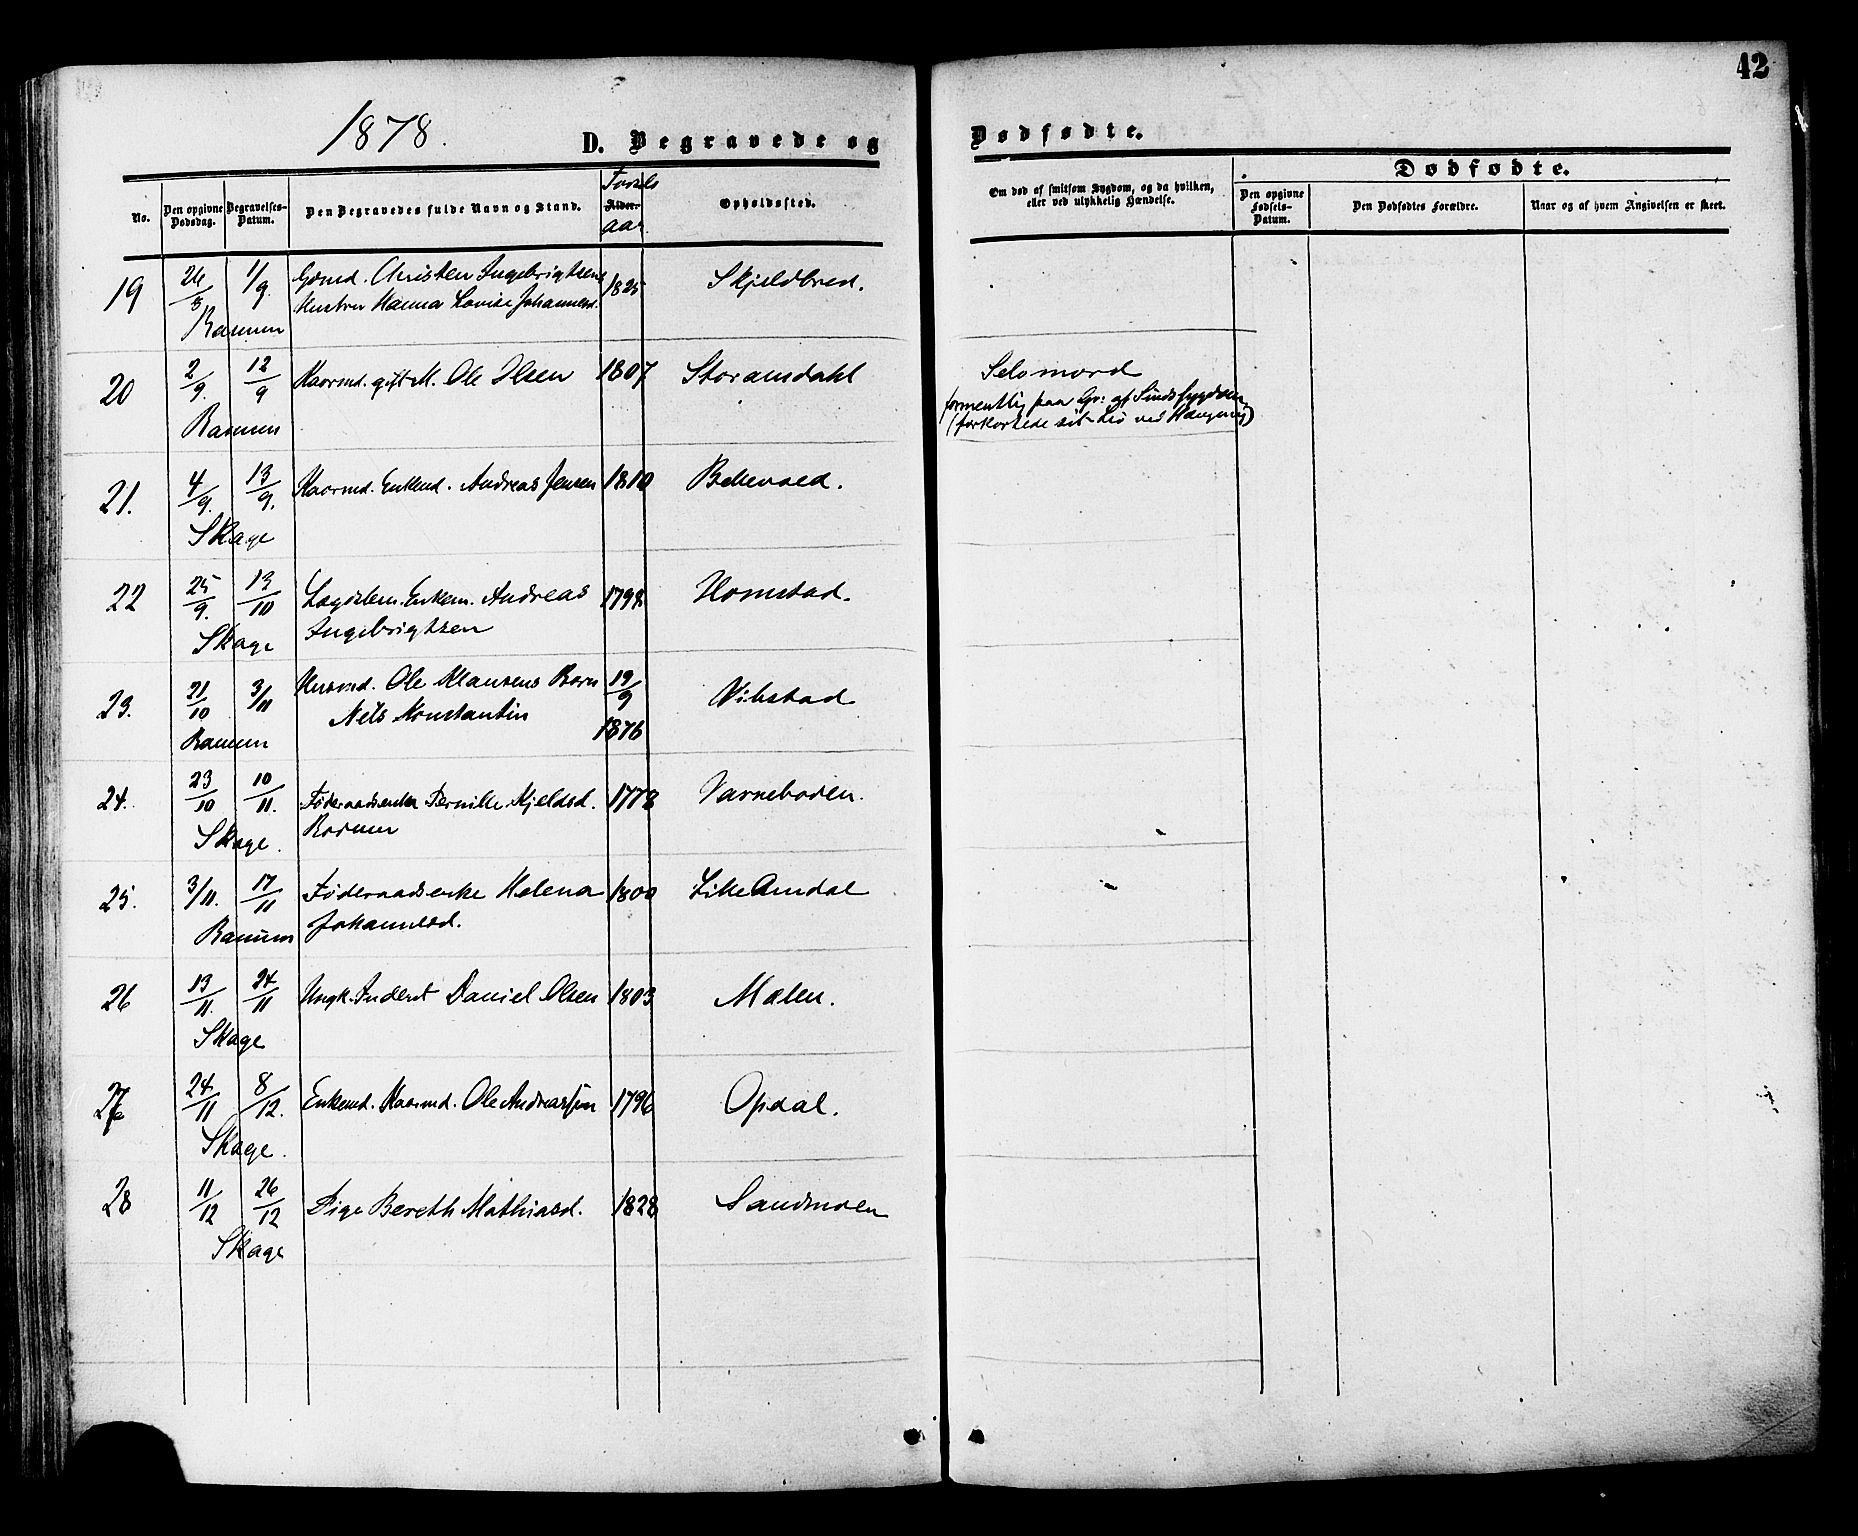 42
1878.
D. Begravede og Dødfødte.
No.
Den opgivne Dødsdag.
Begravelses-Datum.
Den Begravedes fulde Navn og Stand.
Fødsels
Alder.
aar.
Opholdssted.
Om død af smitsom Sygdom, og da hvilken,
eller ved ulykkelig Hændelse.
Dødfødte.
Den opgivne Fødsels-Datum.
Den Dødfødtes Forældre.
Naar og af hvem Angivelsen er skeet.
19 26/8 1/9 Gdmd. Christen Ingebrigtsens 1825 Skjeldbred.
Hustru Hanna Lovise Johannesd.
Ranum
20 2/9. 12/9 Kaarmd. gift M. Ole Olsen 1807 Storamdahl Selvmord
formentlig paa Gr: af Sindssygdom
(forkortede sit Liv ved Hængning)
Ranum
21. 4/9. 13/9. Kaarmd. Enkemd. Andreas Jensen 1810
Skage
22 25/9. 13/10 Lægdslem. Enkem. Andreas Homstad.
Ingebrigtsen
Skage
23. 21/10 3/11 Husmd. Ole Klausens Barn 19/9 Vibstad
Nils Konstantin 1876
Ranum
24. 23/10 10/11. Føderaadsenke Pernille Kjeldsd. 1778
Skage.
25. 3/11. 17/11 Føderaadsenke Helena 1800 Lille Amdal
Johannesd.
Ranum
26 13/11. 24/11 Ungk. Inderst Daniel Olsen 1803 Mælen.
Skage
27 24/11 8/12. Enkemd. Kaarmd. Ole Andreassen 1796 Opdal.
Skage.
28 11/12 26/12 Pige Bereth Mathiasd. 1828 Sandmoen
Skage